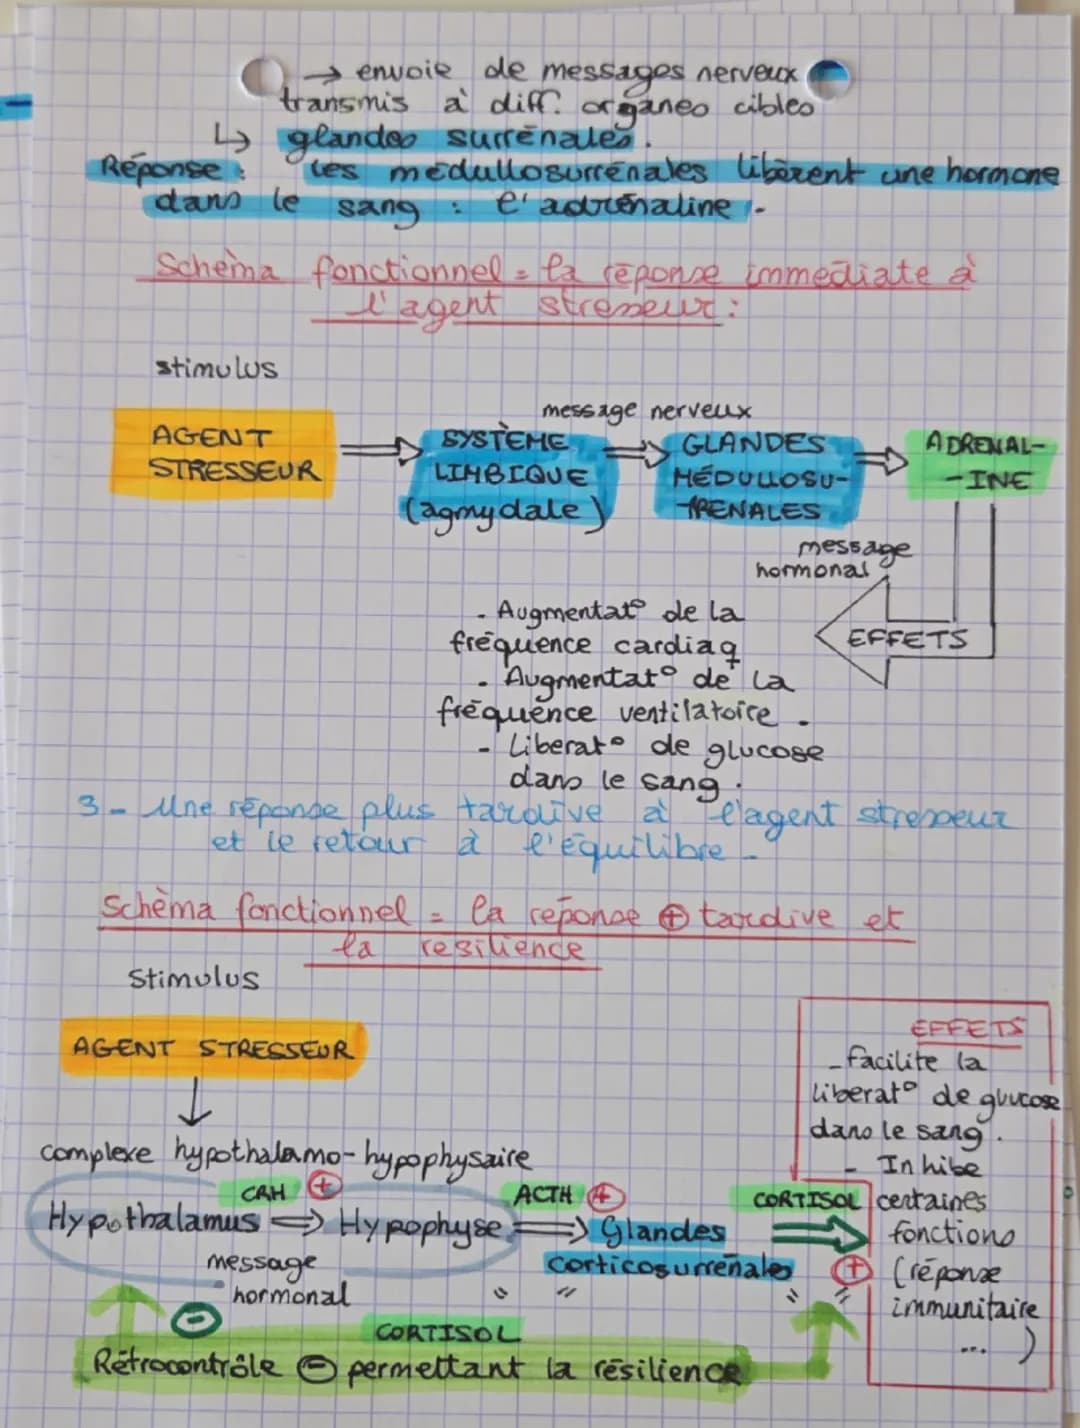 → envoie de messages nerveux
transmis à diff. organes cibles
↳ glandes surrénales.
Réponse : Les médullosurrénales libèrent une hormone
dans le sang : l'adrénaline.
Schéma fonctionnel = la réponse immédiate à
l'agent stresseur :
stimulus
message nerveux
AGENT
STRESSEUR
SYSTÈME
LIMBIQUE
(agmydale)
GLANDES
MÉDULLOSU-
-RRENALES
ADRENAL-
-INE
message
hormonal
EFFETS
- Augmentat° de la
fréquence cardiaq
- Augmentat° de la
fréquence ventilatoire.
- Liberat° de glucose
dans le sang.
3- Une réponse plus tardive à l'agent stresseur
et le retour à l'équilibre.
Schéma fonctionnel = la réponse ⊕ tardive et
la résilience
Stimulus
AGENT STRESSEUR
complexe hypothalamo-hypophysaire
CRH ⊕
ACTH ⊕
CORTISOL
Hypothalamus ⇒ Hypophyse ⇒ Glandes
corticosurrénales
⊕
message
hormonal
" "
" "
⊖
CORTISOL
Rétrocontrôle ⊖ permettant la résilience
EFFETS
- facilite la
liberat° de glucose
dans le sang.
- Inhibe
certaines
fonctions
(réponse
immunitaire
... )